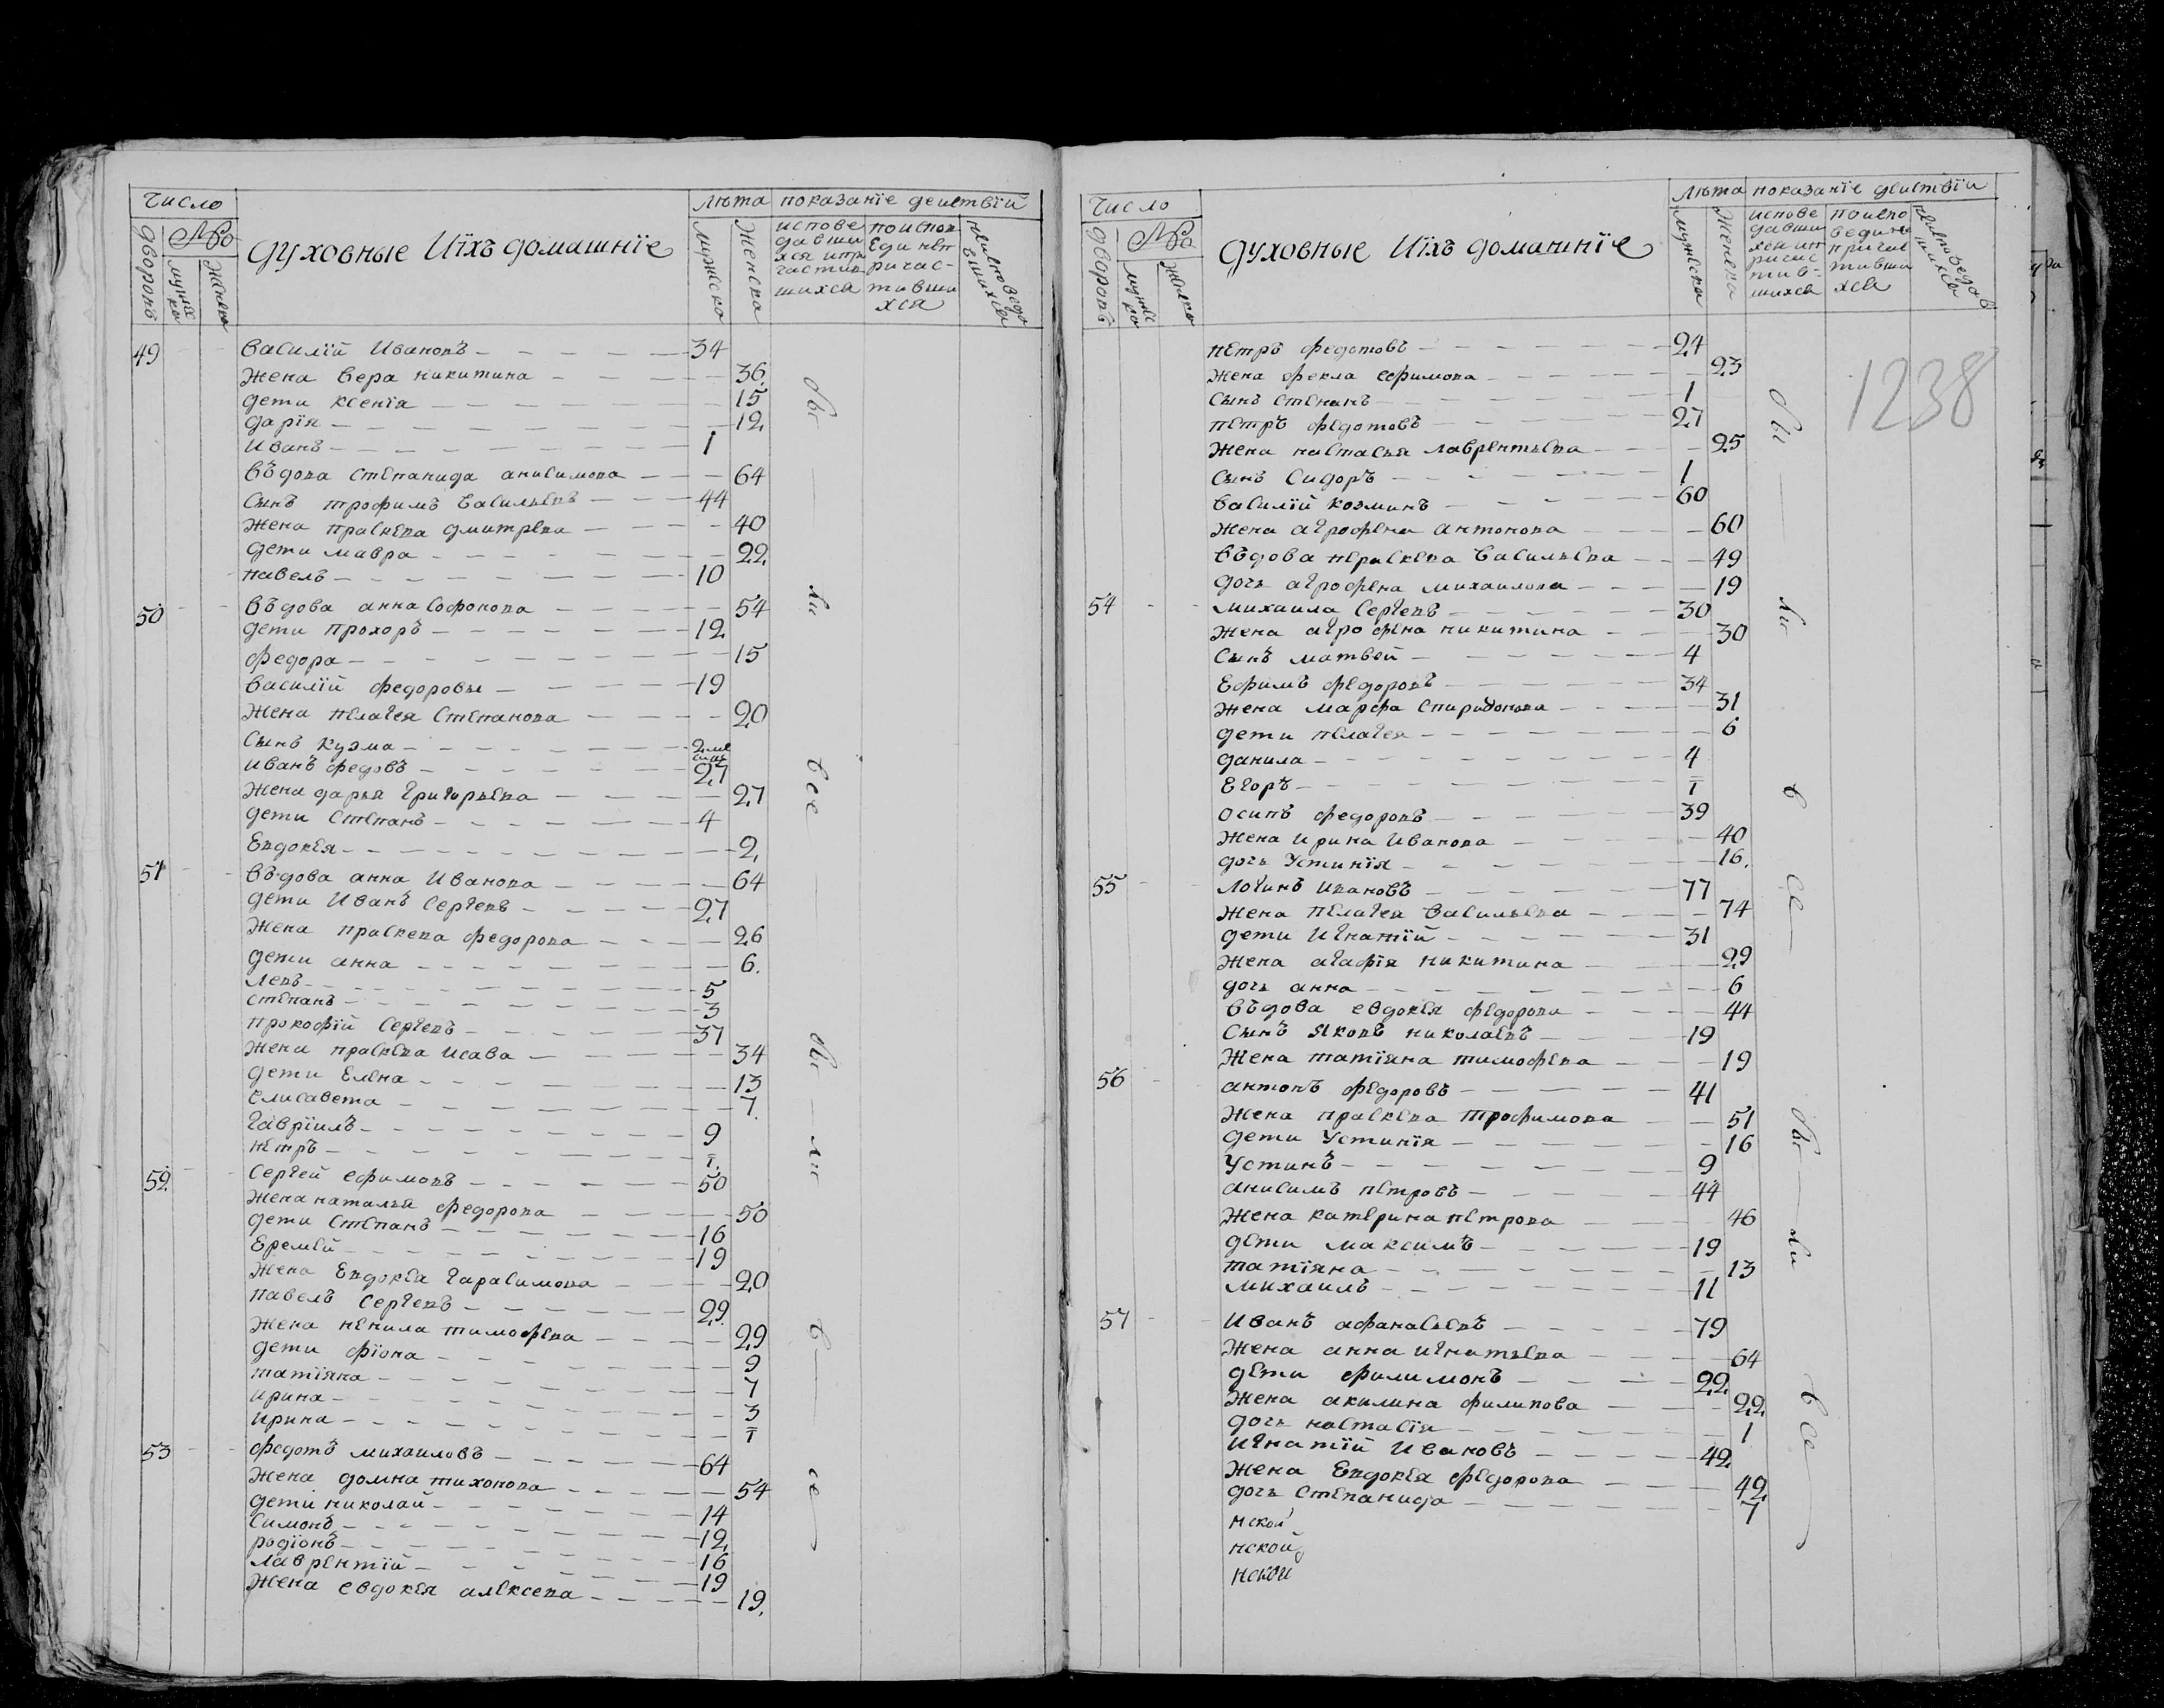 число
лѣта показанїе деиствїй
дворовъ
№
мужеска
женска
духовные Иїхъ домашнїе
мужеска
женска
испове
давши
хся ипр
частив
шихся
поиспов
еди неп
ричас-
тивши
хся
неисповедо
вшихся
49 василїй Ивановъ 34
жена вера никитина 36
дети ксенїя 15
дарїя 12
Иванъ 1
въдова степанида анисимова 64
сынъ трофимъ васильевъ 44
жена праскева дмитрева 40
дети мавра 22
павелъ 10
50 въдова анна софонова 54
дети прохоръ 12
федора 15
василїй федоровы 19
жена пелагея степанова 20
сынъ кузма
иванъ федовъ 27
жена дарья григорьева 27
дети степанъ 4
Евдокея 2
51 въдова анна Иванова 64
дети Иванъ Сергевъ 27
жена праскева федорова 26
дети анна 6
левъ 5
степанъ 3
прокофїй Сергевъ 37
жена праскева исава 34
дети Елена 13
елисавета 7
гаврїилъ 9
петръ 1
52 Сергей ефимовъ 50
жена наталья федорова 50
дети Степанъ 16
Еремей 19
жена Евдокея гарасимова 20
павелъ Сергевъ 29
жена ненила тимофева 29
дети фїона 9
татїяна 7
ирина 3
ирина 1
53 федотъ михаиловъ 64
жена домна тихонова 54
дети николай 14
Симонъ 12
родїонъ 16
лаврентїй 19
жена евдокея алексева 19
обы
ли
все
обы — ли
в
се
число
лѣта показанїе деиствїи
дворовъ
№
мужеска
женска
духовные Иїхъ домашнїе
мужеска
женска
испове
давши
хся ип
ричас
тив-
шихся
поиспо
ведине
причас
тивши
хся
неисповедов
шихся
1238
петръ федотовъ 24
жена фекла ефимова 23
сынъ степанъ 1
петръ федотовъ 27
жена настасья лаврентьева 25
сынъ Сидоръ 1
василїй козминъ 60
жена агрофена антонова 60
въдова пераскева васильева 49
дочь агрофена михаилова 19
54 михаила Сергевъ 30
жена агрофена никитина 30
сынъ матвей 4
Ефимъ федоровъ 34
жена марфа спиридонова 31
дети пелагея 6
данила 4
Егоръ 1
осипъ федоровъ 39
жена ирина Иванова 40
дочь Устинїя 16
55 логинъ ивановъ 77
жена пелагея васильева 74
дети Игнатїй 31
жена агафїя никитина 29
дочь анна 6
въдова евдокея федорова 44
сынъ яковъ николаевъ 19
жена татїяна тимофева 19
56 антонъ федоровъ 41
жена праскева трофимова 51
дети Устинїя 16
Устинъ 9
анисимъ петровъ 44
жена катерина петрова 46
дети максимъ 19
татїяна 13
михаилъ 11
57 Иванъ афанасьевъ 79
жена анна игнатьева 64
дети филимонъ 22
жена акилина филипова 22
дочь настасїя 1
игнатїй Ивановъ 42
жена Евдокея федорова 42
дочь степанида 7
нской
нской
нской
обы
ли
в
се
обы — ли
в се